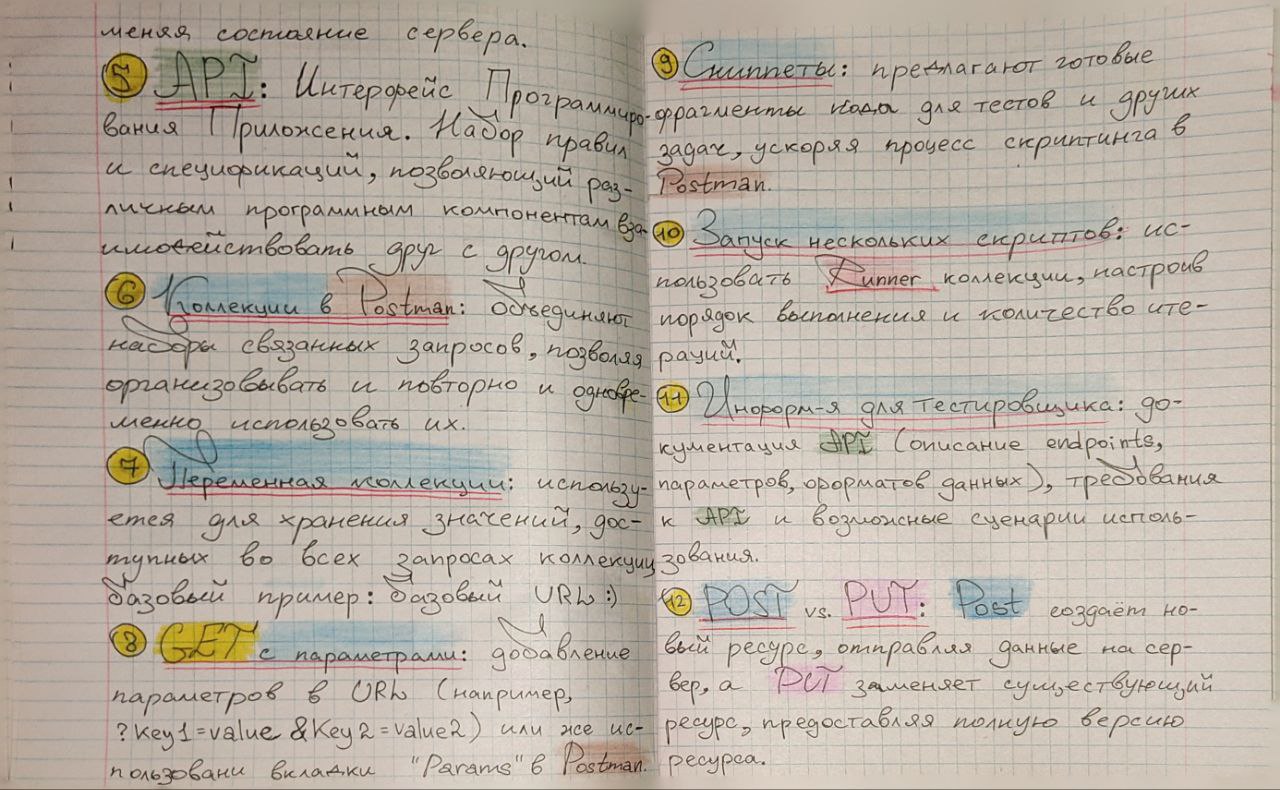 меняя состояние сервера.
5 API: Интерфейс Программиро-
вания Приложения. Набор правил
и спецификаций, позволяющий раз-
личным программным компонентам вза-
имодействовать друг с другом.
6 Коллекции в Postman: Объединяют
наборы связанных запросов, позволяя
организовывать и повторно и одновре-
менно использовать их.
7 Переменная коллекции: использу-
ется для хранения значений, дос-
тупных во всех запросах коллекции
базовый пример: базовый URL :)
8 GET с параметрами: добавление
параметров в URL (например,
?key1=value &key2=value2) или же ис-
пользовани вкладки "Params" в Postman.
9 Сниппеты: предлагают готовые
фрагменты кода для тестов и других
задач, ускоряя процесс скриптинга в
Postman.
10 Запуск нескольких скриптов: ис-
пользовать Runner коллекции, настроив
порядок выполнения и количество ите-
раций.
11 Информ-я для тестировщика: до-
кументация API (описание endpoints,
параметров, форматов данных), требования
к API и возможные сценарии исполь-
зования.
12 POST vs. PUT: Post создаёт но-
вый ресурс, отправляя данные на сер-
вер, а PUT заменяет существующий
ресурс, предоставляя полную версию
ресурса.